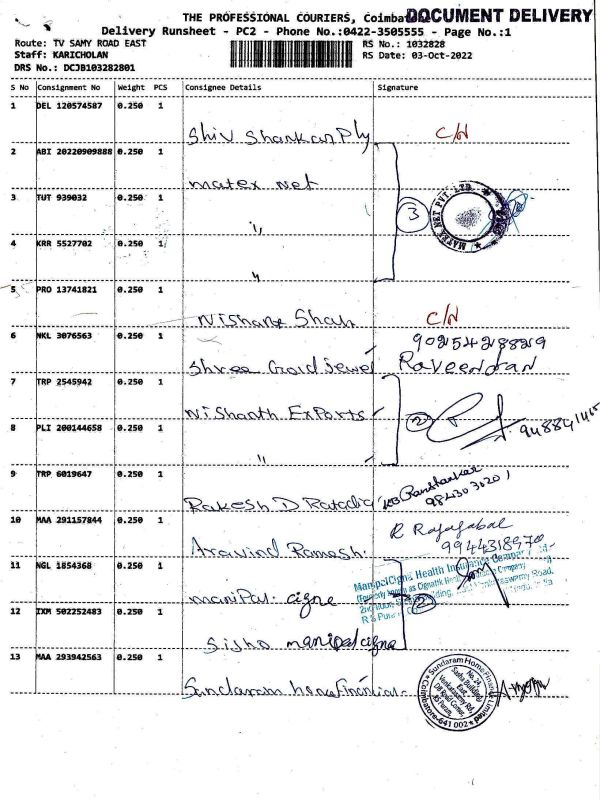 THE PROFESSIONAL COURIERS, Coimbat
DOCUMENT DELIVERY
Delivery Runsheet - PC2 - Phone No.:0422-3505555 - Page No.:1
Route: TV SAMY ROAD EAST
RS No.: 1032828
Staff: KARICHOLAN
RS Date: 03-Oct-2022
DRS No.: DCJB103282801
S No Consignment No Weight PCS Consignee Details Signature
1 DEL 120574587 0.250 1
Shiv Shankar Ply C/N
2 ABI 20220909888 0.250 1
matex net
3 TUT 939032 0.250 1
"
3
MATEX NET PVT LTD.
4 KRR 5527702 0.250 1
"
5 PRO 13741821 0.250 1
Nishant Shah C/N
6 NKL 3076563 0.250 1
9025428829
Shree Gold Jewel Raveendran
7 TRP 2545942 0.250 1
Nishanth Exports 2
8 PLI 200144658 0.250 1
"
9 TRP 6019647 0.250 1
Rakesh D
9843030201
10 MAA 291157844 0.250 1
R Rajagabal
9944318970
Aravind Ramesh.
11 NGL 1854368 0.250 1
ManipalCigna Health Insurance Company
maniPal. cigne
2
12 IXM 502252483 0.250 1
manipal cigne
13 MAA 293942563 0.250 1
Sundaram home Financial
Sundaram Home Finance Limited
Coimbatore-641 002